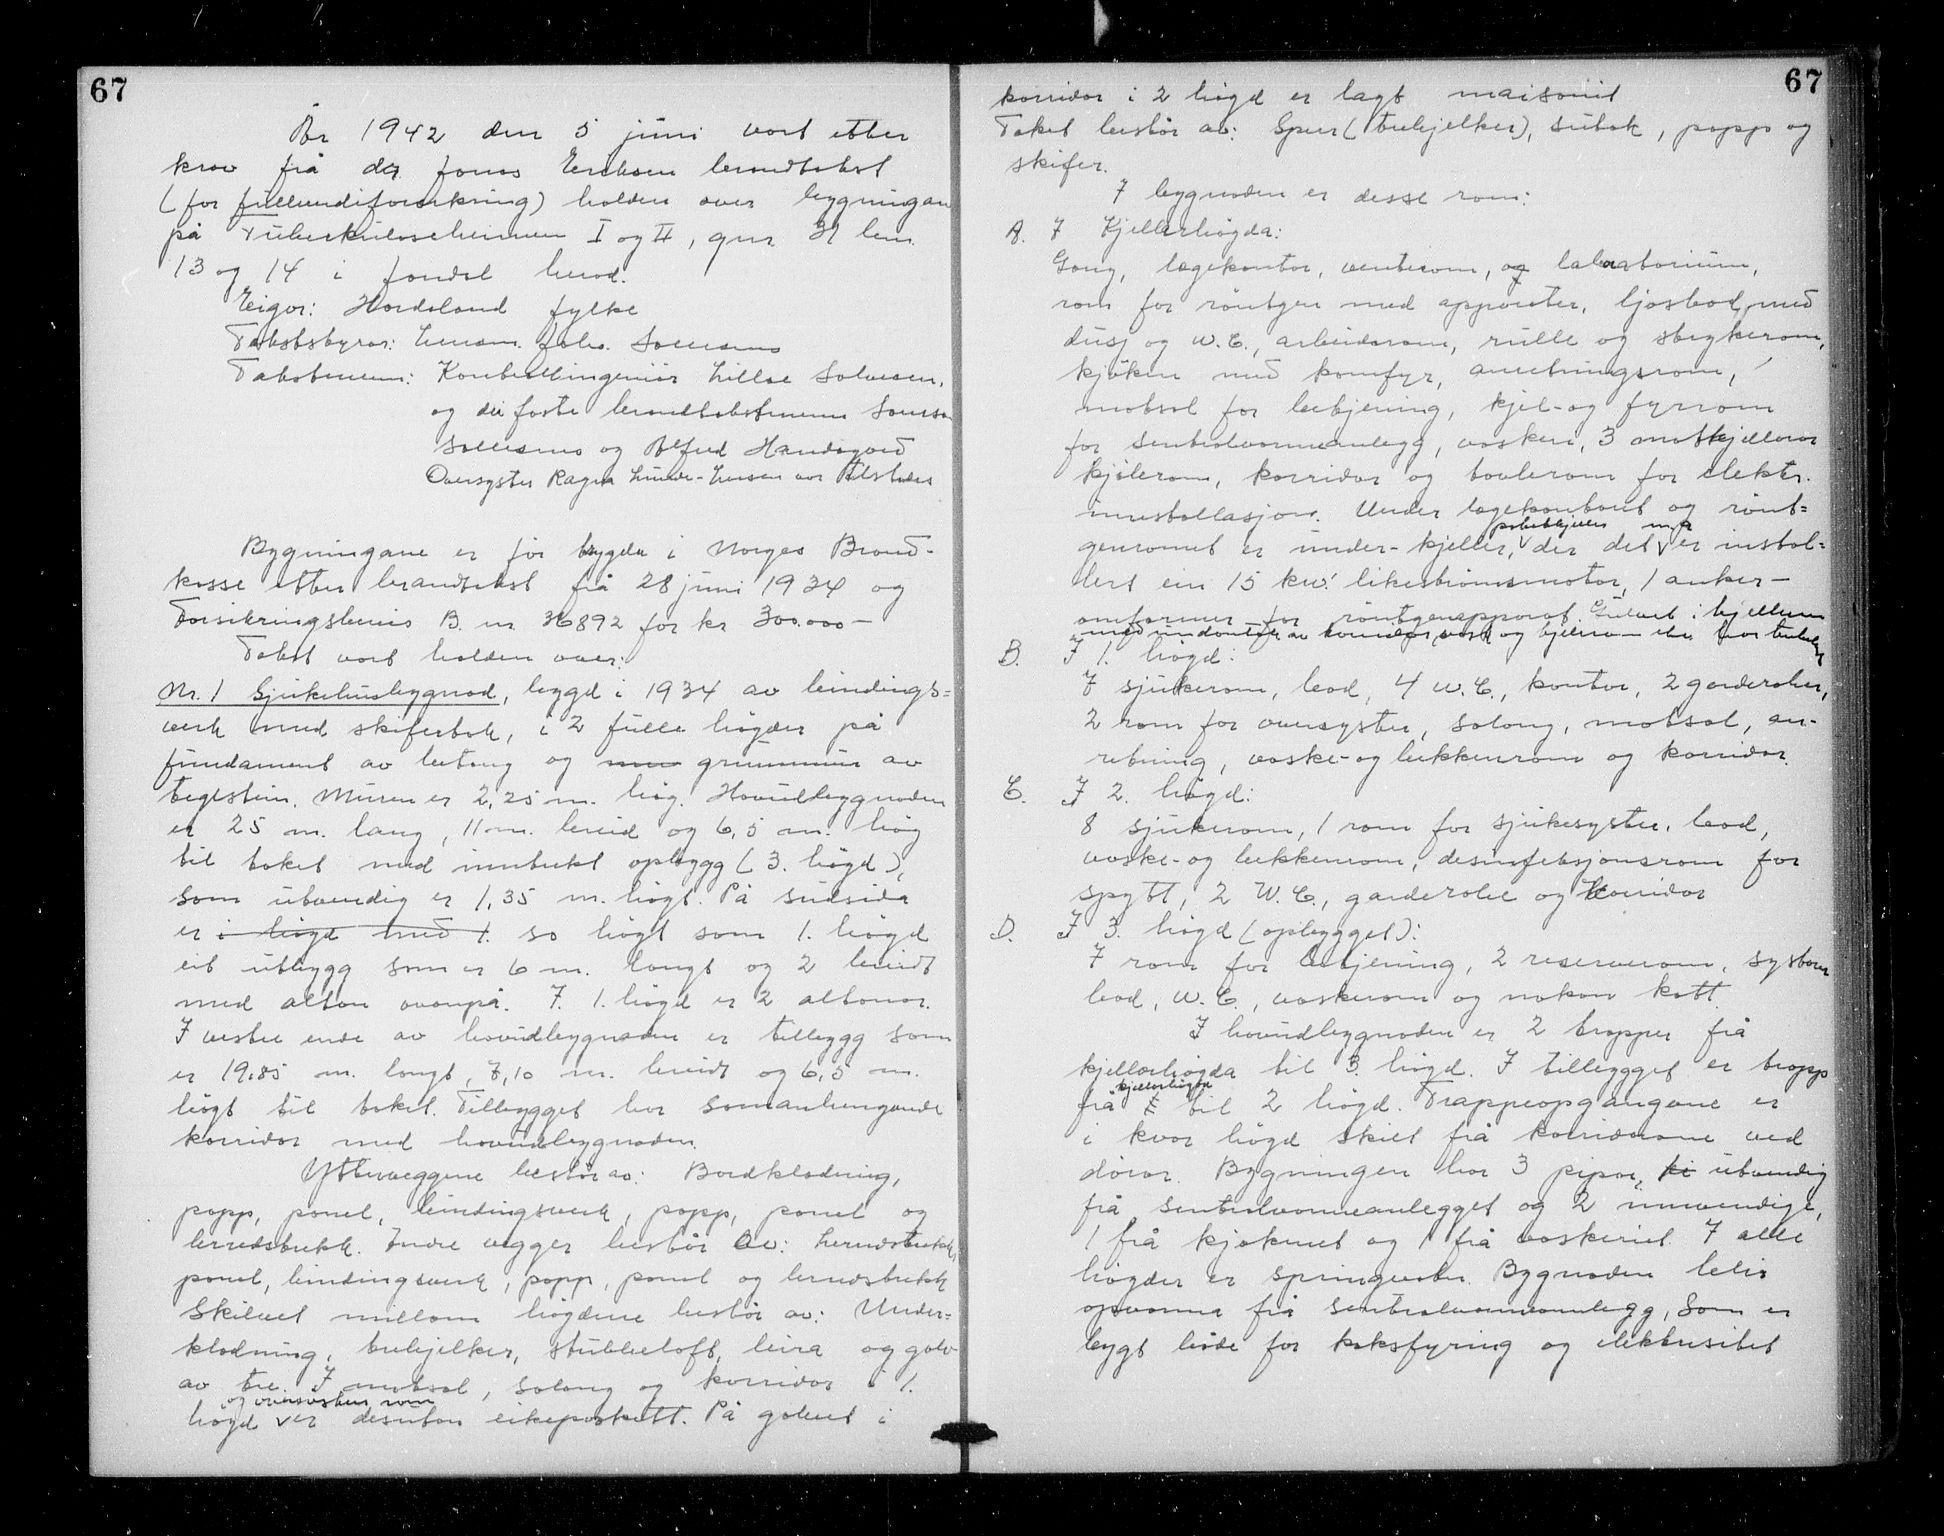 67
År 1942 den 5 juni vart etter
krav frå dr. Jonas Eriksen brandtakst
(for fullverdiforsikring) halden over bygningan
på Tuberkuloseheimen I og II, gnr 31 bnr.
13 og 14 i Jondal herad.
Eigar: Hordaland fylke
Takstbyrar: Lensm. Johs. Solesnes
Takstmenn: Kontrollingeniør Lillae Solvesen,
og dei faste brandtakstmenn Lars
Solesnes og Alfred Handegard
Oversyster Ragna Lunde-Larsen var tilstades
Bygningane er før trygda i Norges Brand-
kasse etter brandtakst frå 28 juni 1934 og
Forsikringsbevis B. nr 36892 for kr 300.000 —
Takst vart halden over:
Nr. 1 Sjukehusbygnad, bygd i 1934 av bindings=
verk med skifertak, i 2 fulle høgder på
fundament av betong og grunnmur av
teglstein. Muren er 2,25 m. høg. Hovudbygnaden
er 25 m. lang, 11 m. breid og 6,5 m. høg
til taket med inntrekt opbygg (3. høgd),
som utvendig er 1,35 m. høgt. På sudsida
er i høgd med 1. so høgt som 1. høgd
eit utbygg som er 6 m. langt og 2 breidt
med altan ovanpå. I 1. høgd er 2 altanar.
I vestre ende av hovudbygnaden er tilbygg som
er 19,85 m. langt, 7,10 m. breidt og 6,5 m.
høgt til taket. Tilbygget har samanhengande
korridor med hovudbygnaden.
Ytterveggene består av: Bordkledning,
papp, panel, bindingsverk, papp, panel og
lerredstrekk. Indre vegger består av: Lerredstrekk,
panel, bindingsverk, papp, panel og lerredstrekk
Skilnet millom høgdene består av: Under=
kledning, trebjelker, stubbeloft, leira og golv
av tre. I matsal, salong og korridor i 1.
og oversysters rom
høgd er desutan eikeparkett. På golvet i
67
korridor i 2 høgd er lagt maisonit
Taket består av: Sperr (trebjelker), sutak, papp og
skifer.
I bygnaden er desse rom:
A. I Kjellarhøgda:
Gang, lægekontor, venterom, og laboratorium,
rom for røntgen med apparater, ljosbad, med
dusj og W.C., arbeidsrom, rulle og strykerom,
kjøken med komfyr, anretningsrom,
matsal for betjening, kjel- og fyrrom
for sentralvarmeanlegg, vaskeri, 3 matkjellarar
kjølerom, korridor og tavlerom for elektr.
innstallasjon. Under lægekontoret og rønt=
potetkjeller m.a
genromet er under-kjeller, der det er instal=
lert ein 15 kw. likestrømsmotor, 1 anker-
omformer for røntgenapparat. Golvet i kjelleren
med undantak av korridor, vask og kjelerom etc har trebelegg
B. I 1. høgd:
7 sjukerom, bad, 4 W.C., kontor, 2 garderober,
2 rom for oversyster, salong, matsal, an-
retning, vaske- og bekkenrom og korridor.
C. I 2. høgd:
8 sjukerom, 1 rom for sjukesyster, bad,
vaske- og bekkenrom, desinfeksjonsrom for
spytt, 2 W.C., garderobe og korridor
D. I 3. høgd (opbygget):
7 rom for betjening, 2 reserverom, systove
bad, W.C., vaskerom og nokon kott.
I hovudbygnaden er 2 trapper frå
kjellarhøgda til 3. høgd. I tilbygget er trapp
kjellarhøgda
frå til 2 høgd. Trappeopgangane er
i kvar høgd skilt frå korridorane ved
dører. Bygningen har 3 piper, utvendig
frå sentralvarmeanlegget og 2 innvendige,
1 frå kjøkenet og 1 frå vaskeriet. I alle
høgder er springvatn. Bygnaden blir
opvarma frå sentralvarmeanlegg, som er
bygt både for koksfyring og elektrisitet